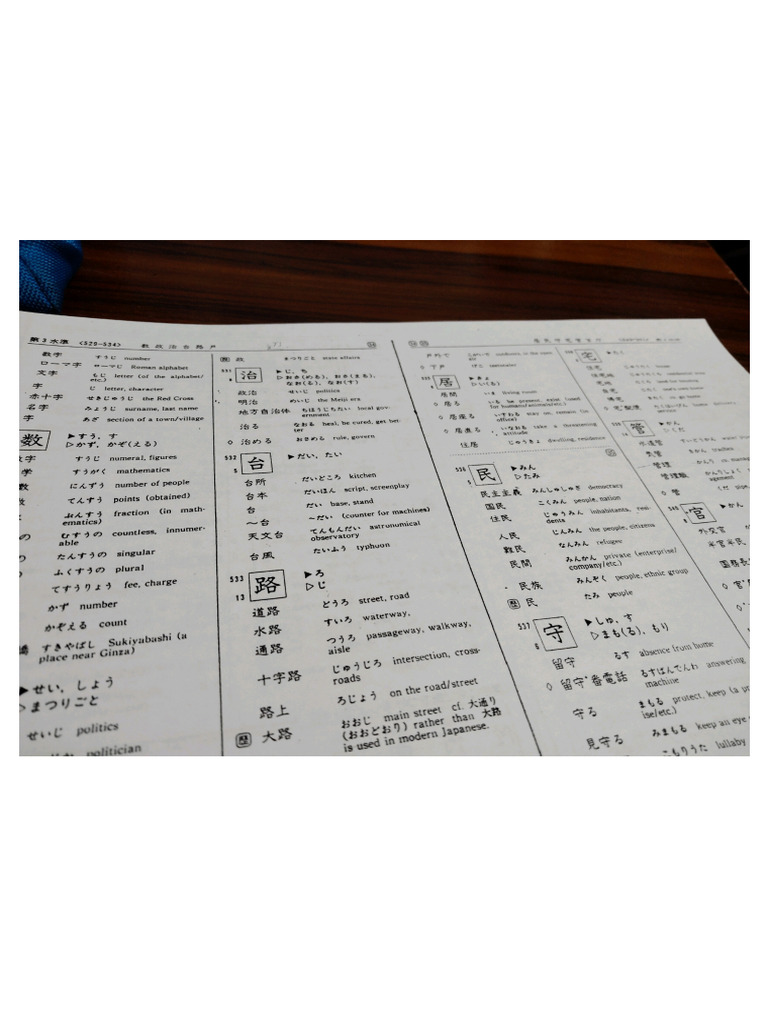 第3水準 〈529-534〉 数政治台路戸
数字 すうじ number
ローマ字 ローマじ Roman alphabet
文字 もじ letter (of the alphabet/
etc.)
字 じ letter, character
赤十字 せきじゅうじ the Red Cross
名字 みょうじ surname, last name
字 あざ section of a town/village
数 ▶すう, す
▷かず, かぞ(える)
数字 すうじ numeral, figures
学 すうがく mathematics
数 にんずう number of people
数 てんすう points (obtained)
ぶんすう fraction (in math-
ematics)
の むすうの countless, innumer-
able
の たんすうの singular
ふくすうの plural
てすうりょう fee, charge
かず number
かぞえる count
橋 すきやばし Sukiyabashi (a
place near Ginza)
▶せい, しょう
▷まつりごと
せいじ politics
politician
歴 政 まつりごと state affairs
531 治 ▶じ, ち
▷おさ(める), おさ(まる),
なお(る), なお(す)
政治 せいじ politics
明治 めいじ the Meiji era
地方自治体 ちほうじちたい local gov-
ernment
治る なおる heal, be cured, get bet-
ter
◇ 治める おさめる rule, govern
532 台 ▶だい, たい
5
台所 だいどころ kitchen
台本 だいほん script, screenplay
台 だい base, stand
〜台 〜だい (counter for machines)
天文台 てんもんだい astronomical
observatory
台風 たいふう typhoon
533 路 ▶ろ
13 ▷じ
道路 どうろ street, road
水路 すいろ waterway,
通路 つうろ passageway, walkway,
aisle
十字路 じゅうじろ intersection, cross-
roads
路上 ろじょう on the road/street
歴 大路 おおじ main street cf. 大通り
(おおどおり) rather than 大路
is used in modern Japanese.
戸外で
居 ▶きょ
▷い(る)
居間 いま living room
居る いる be present, exist (used
for humans/animals/etc.)
◇ 居座る いすわる stay on, remain (in
office)
◇ 居直る いなおる take a threatening
attitude
住居 じゅうきょ dwelling, residence
536 民 ▶みん
5 ▷たみ
民主主義 みんしゅしゅぎ democracy
国民 こくみん people, nation
住民 じゅうみん inhabitants, resi-
dents
人民 じんみん the people, citizens
難民 なんみん refugee
民間 みんかん private (enterprise/
company/etc.)
民族 みんぞく people, ethnic group
歴 民 たみ people
537 守 ▶しゅ, す
6 ▷まも(る), もり
留守 るす absence from home
◇ 留守番電話 るすばんでんわ answering
machine
守る まもる protect, keep (a pr
ise/etc.)
見守る みまもる keep an eye
こもりうた lullaby
宅 ▶たく
管 ▶かん
▷くだ
水道管
気管
管理
管理職
◇ 管
官 ▶かん
外交官
半官半民
国務長